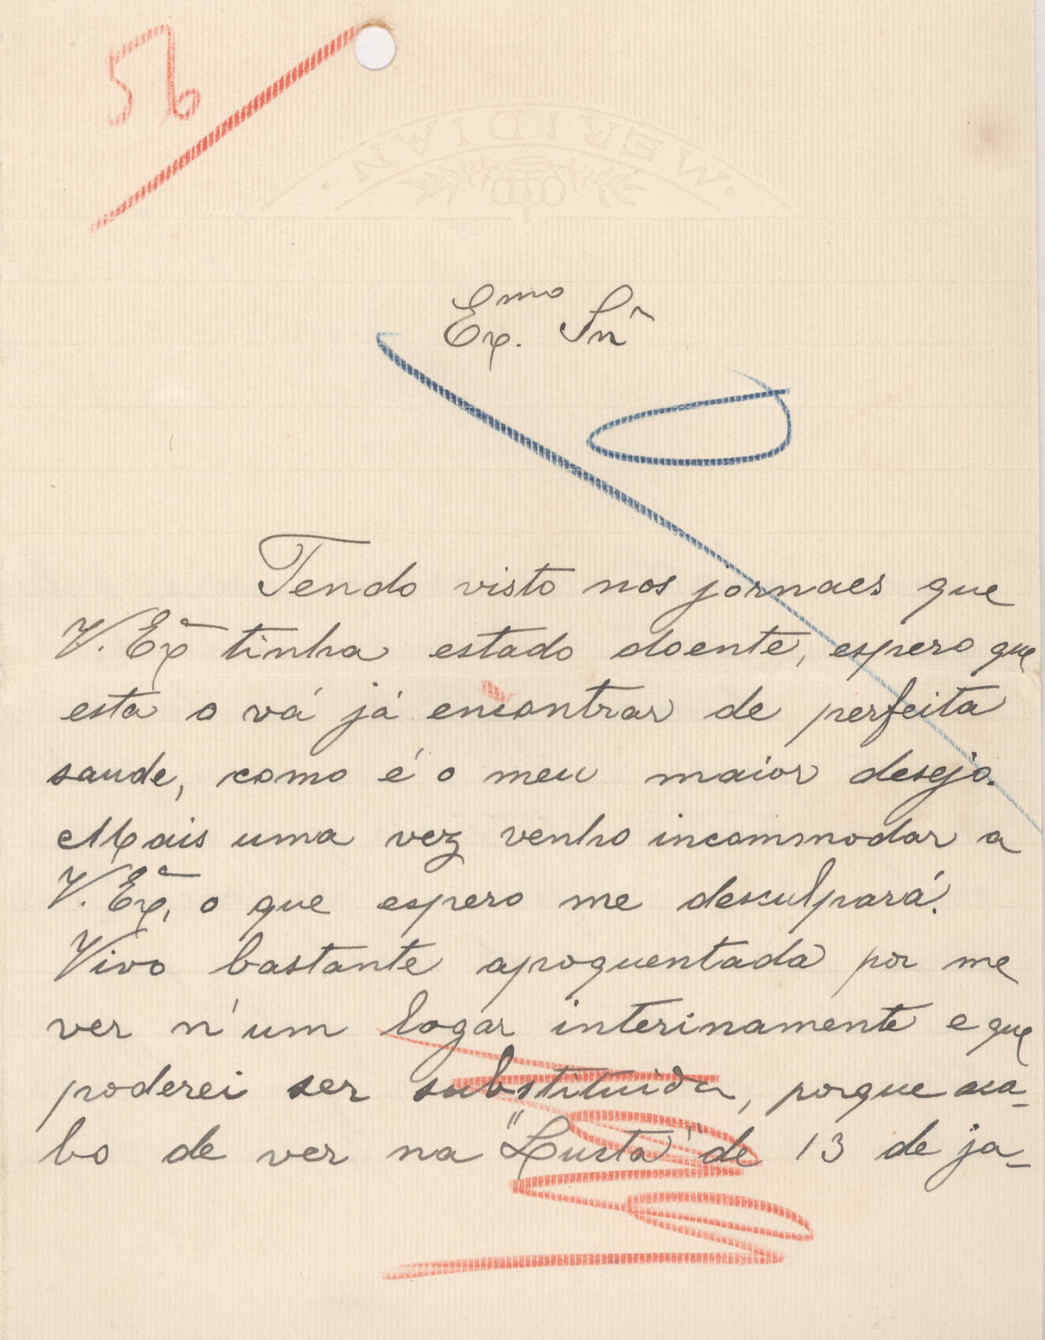 56
MERIDIAN
Ex.mo Snr
Tendo visto nos jornaes que
V. Exa tinha estado doente, espero que
esta o vá já encontrar de perfeita
saude, como é o meu maior desejo.
Mais uma vez venho incommodar a
V. Exa, o que espero me desculpará.
Vivo bastante apoquentada por me
ver n'um logar interinamente e que
poderei ser substituida, porque aca-
bo de ver na "Lucta" de 13 de ja-